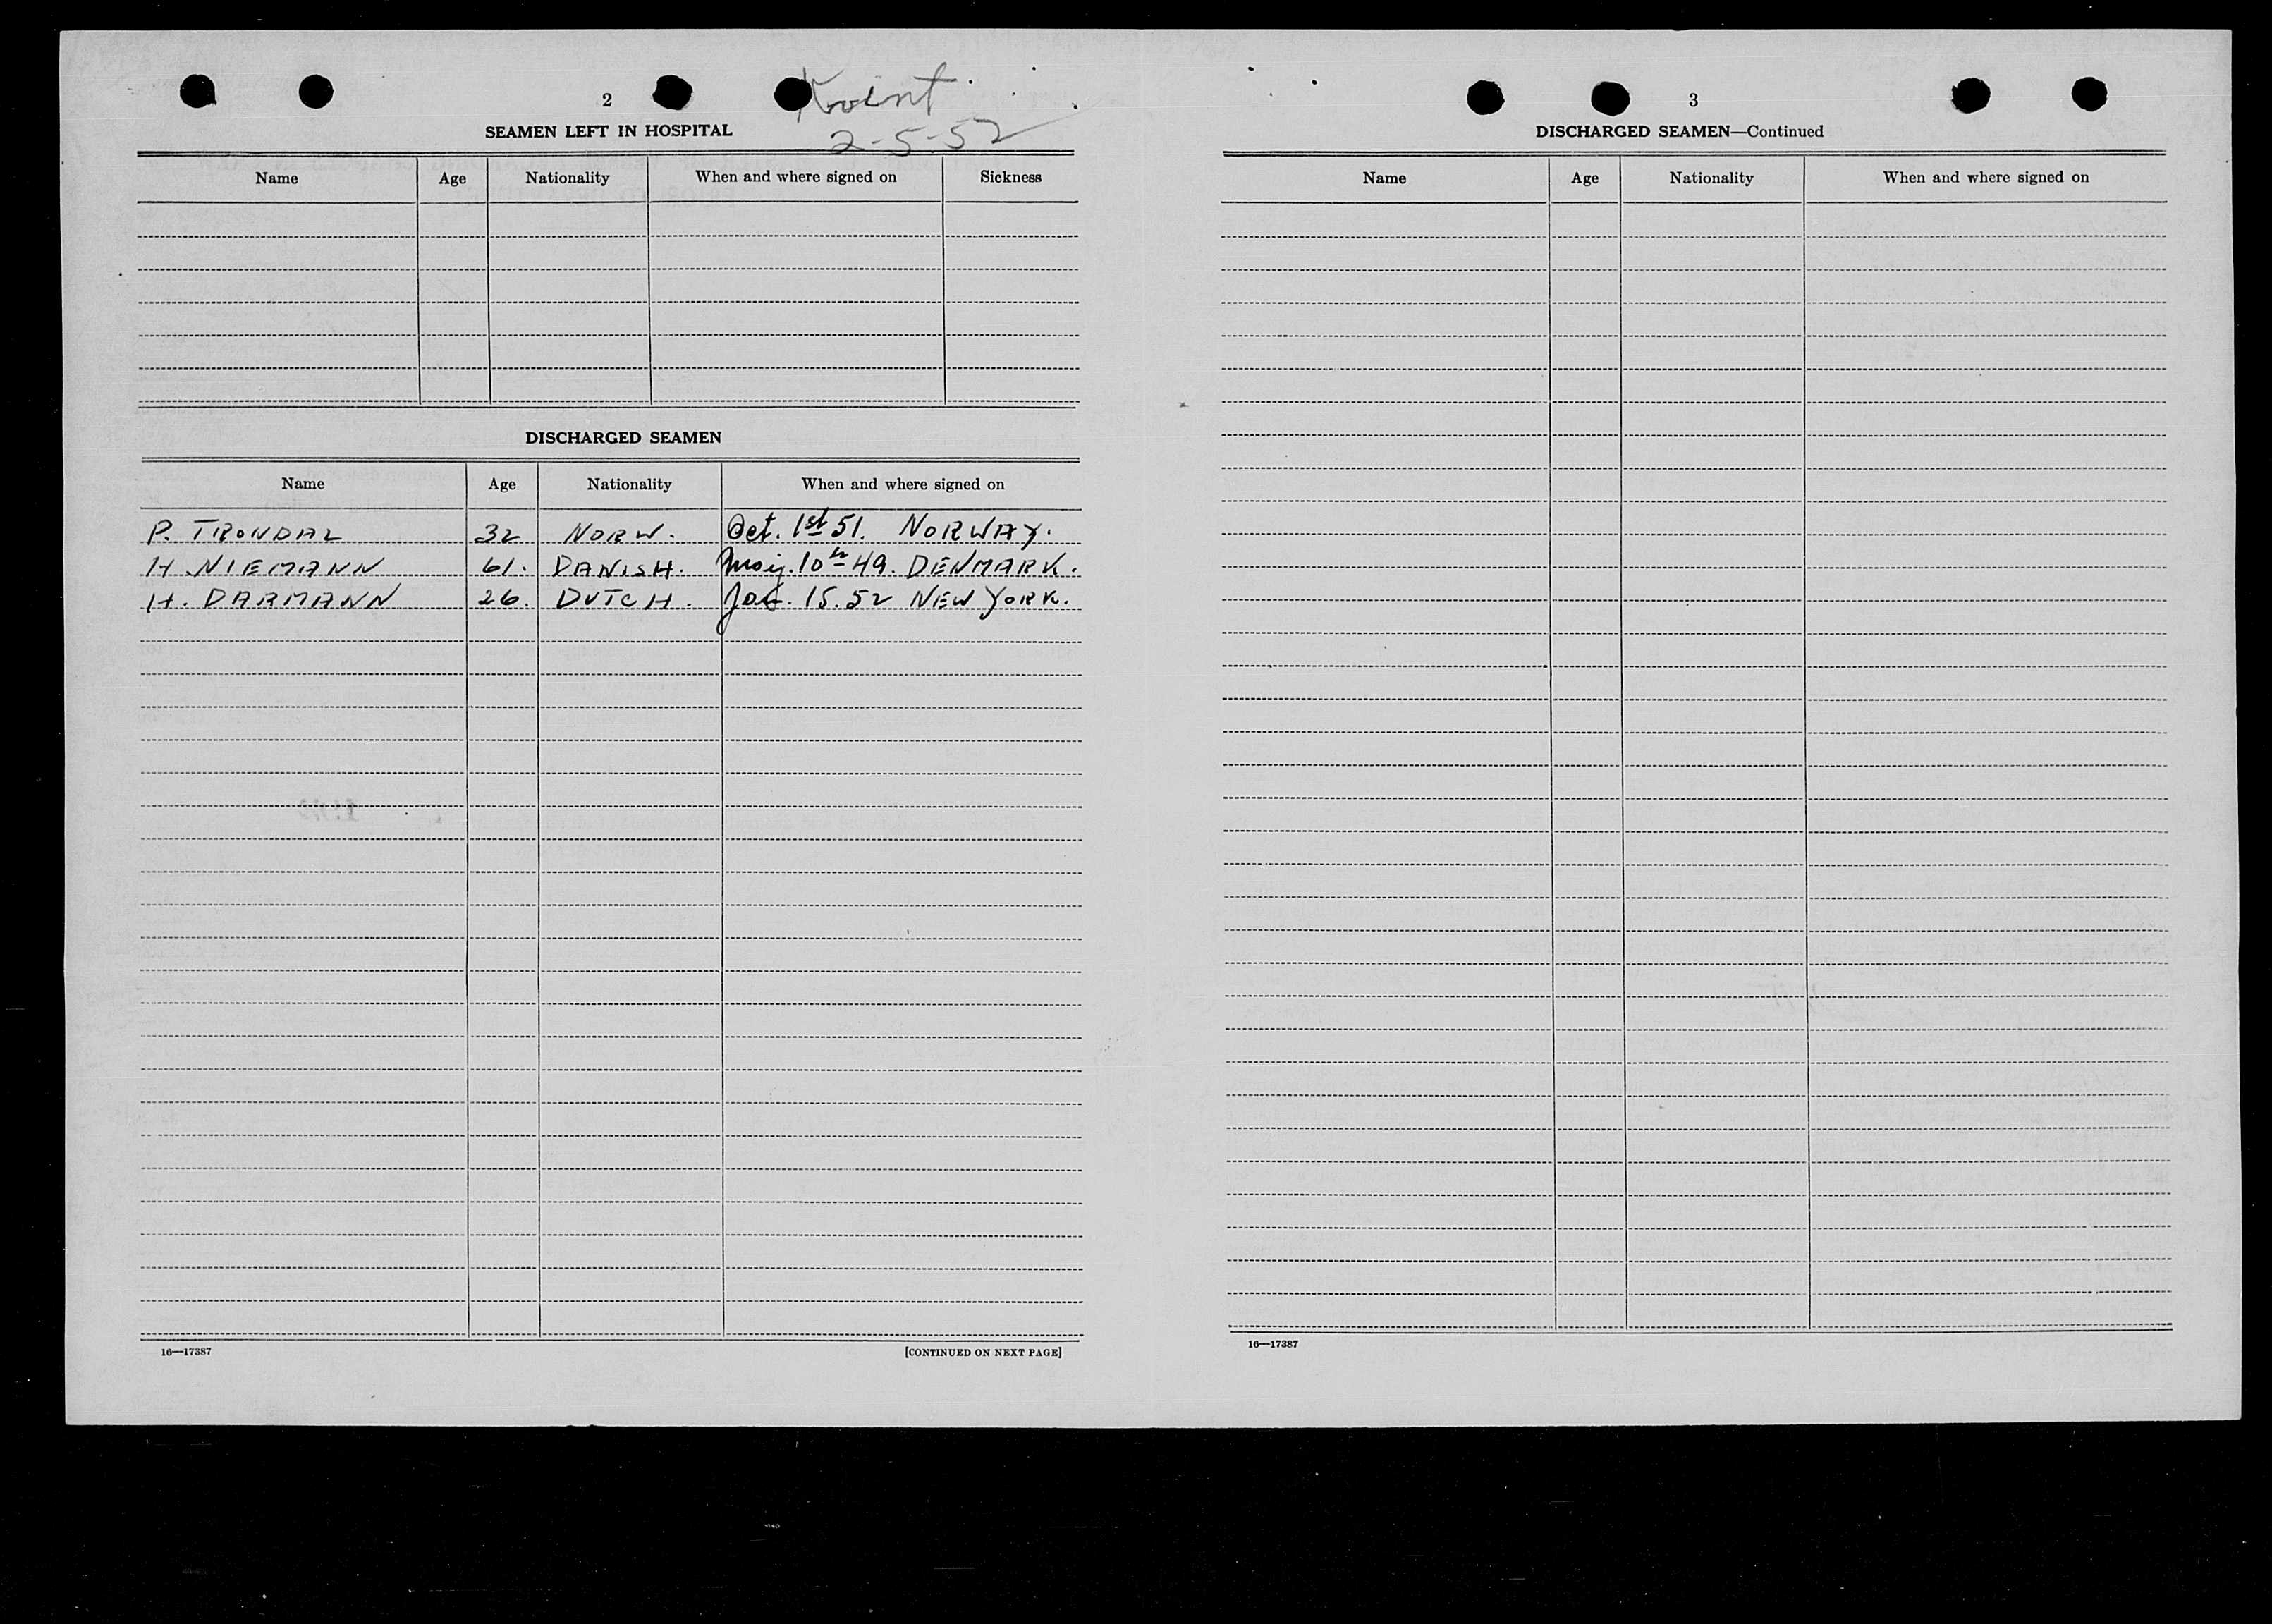 2
2-5-52
SEAMEN LEFT IN HOSPITAL
Name Age Nationality When and where signed on Sickness
DISCHARGED SEAMEN
Name Age Nationality When and where signed on
P. TRONDAL 32 NORW. Oct. 1st 51. NORWAY.
H. NIEMANN 61. DANISH. 10th 49. DENMARK.
H. DARMANN 26. DUTCH. 15. 52 NEW YORK.
16—17387 [CONTINUED ON NEXT PAGE]
3
DISCHARGED SEAMEN—Continued
Name Age Nationality When and where signed on
16—17387